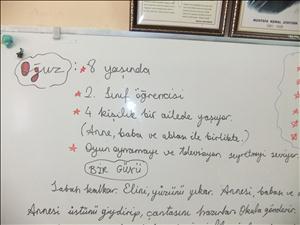 MUSTAFA KEMAL ATATÜRK
Oğuz : * 8 yaşında
* 2. Sınıf öğrencisi
* 4 kişilik bir ailede yaşıyor.
(Anne, baba ve ablası ile birlikte.)
* Oyun oynamayı ve televizyon seyretmeyi seviyor.
BİR GÜNÜ
Sabah kalkar. Elini, yüzünü yıkar. Annesi, babası ve
Annesi üstünü giydirip, çantasını hazırlar. Okula gönderir.